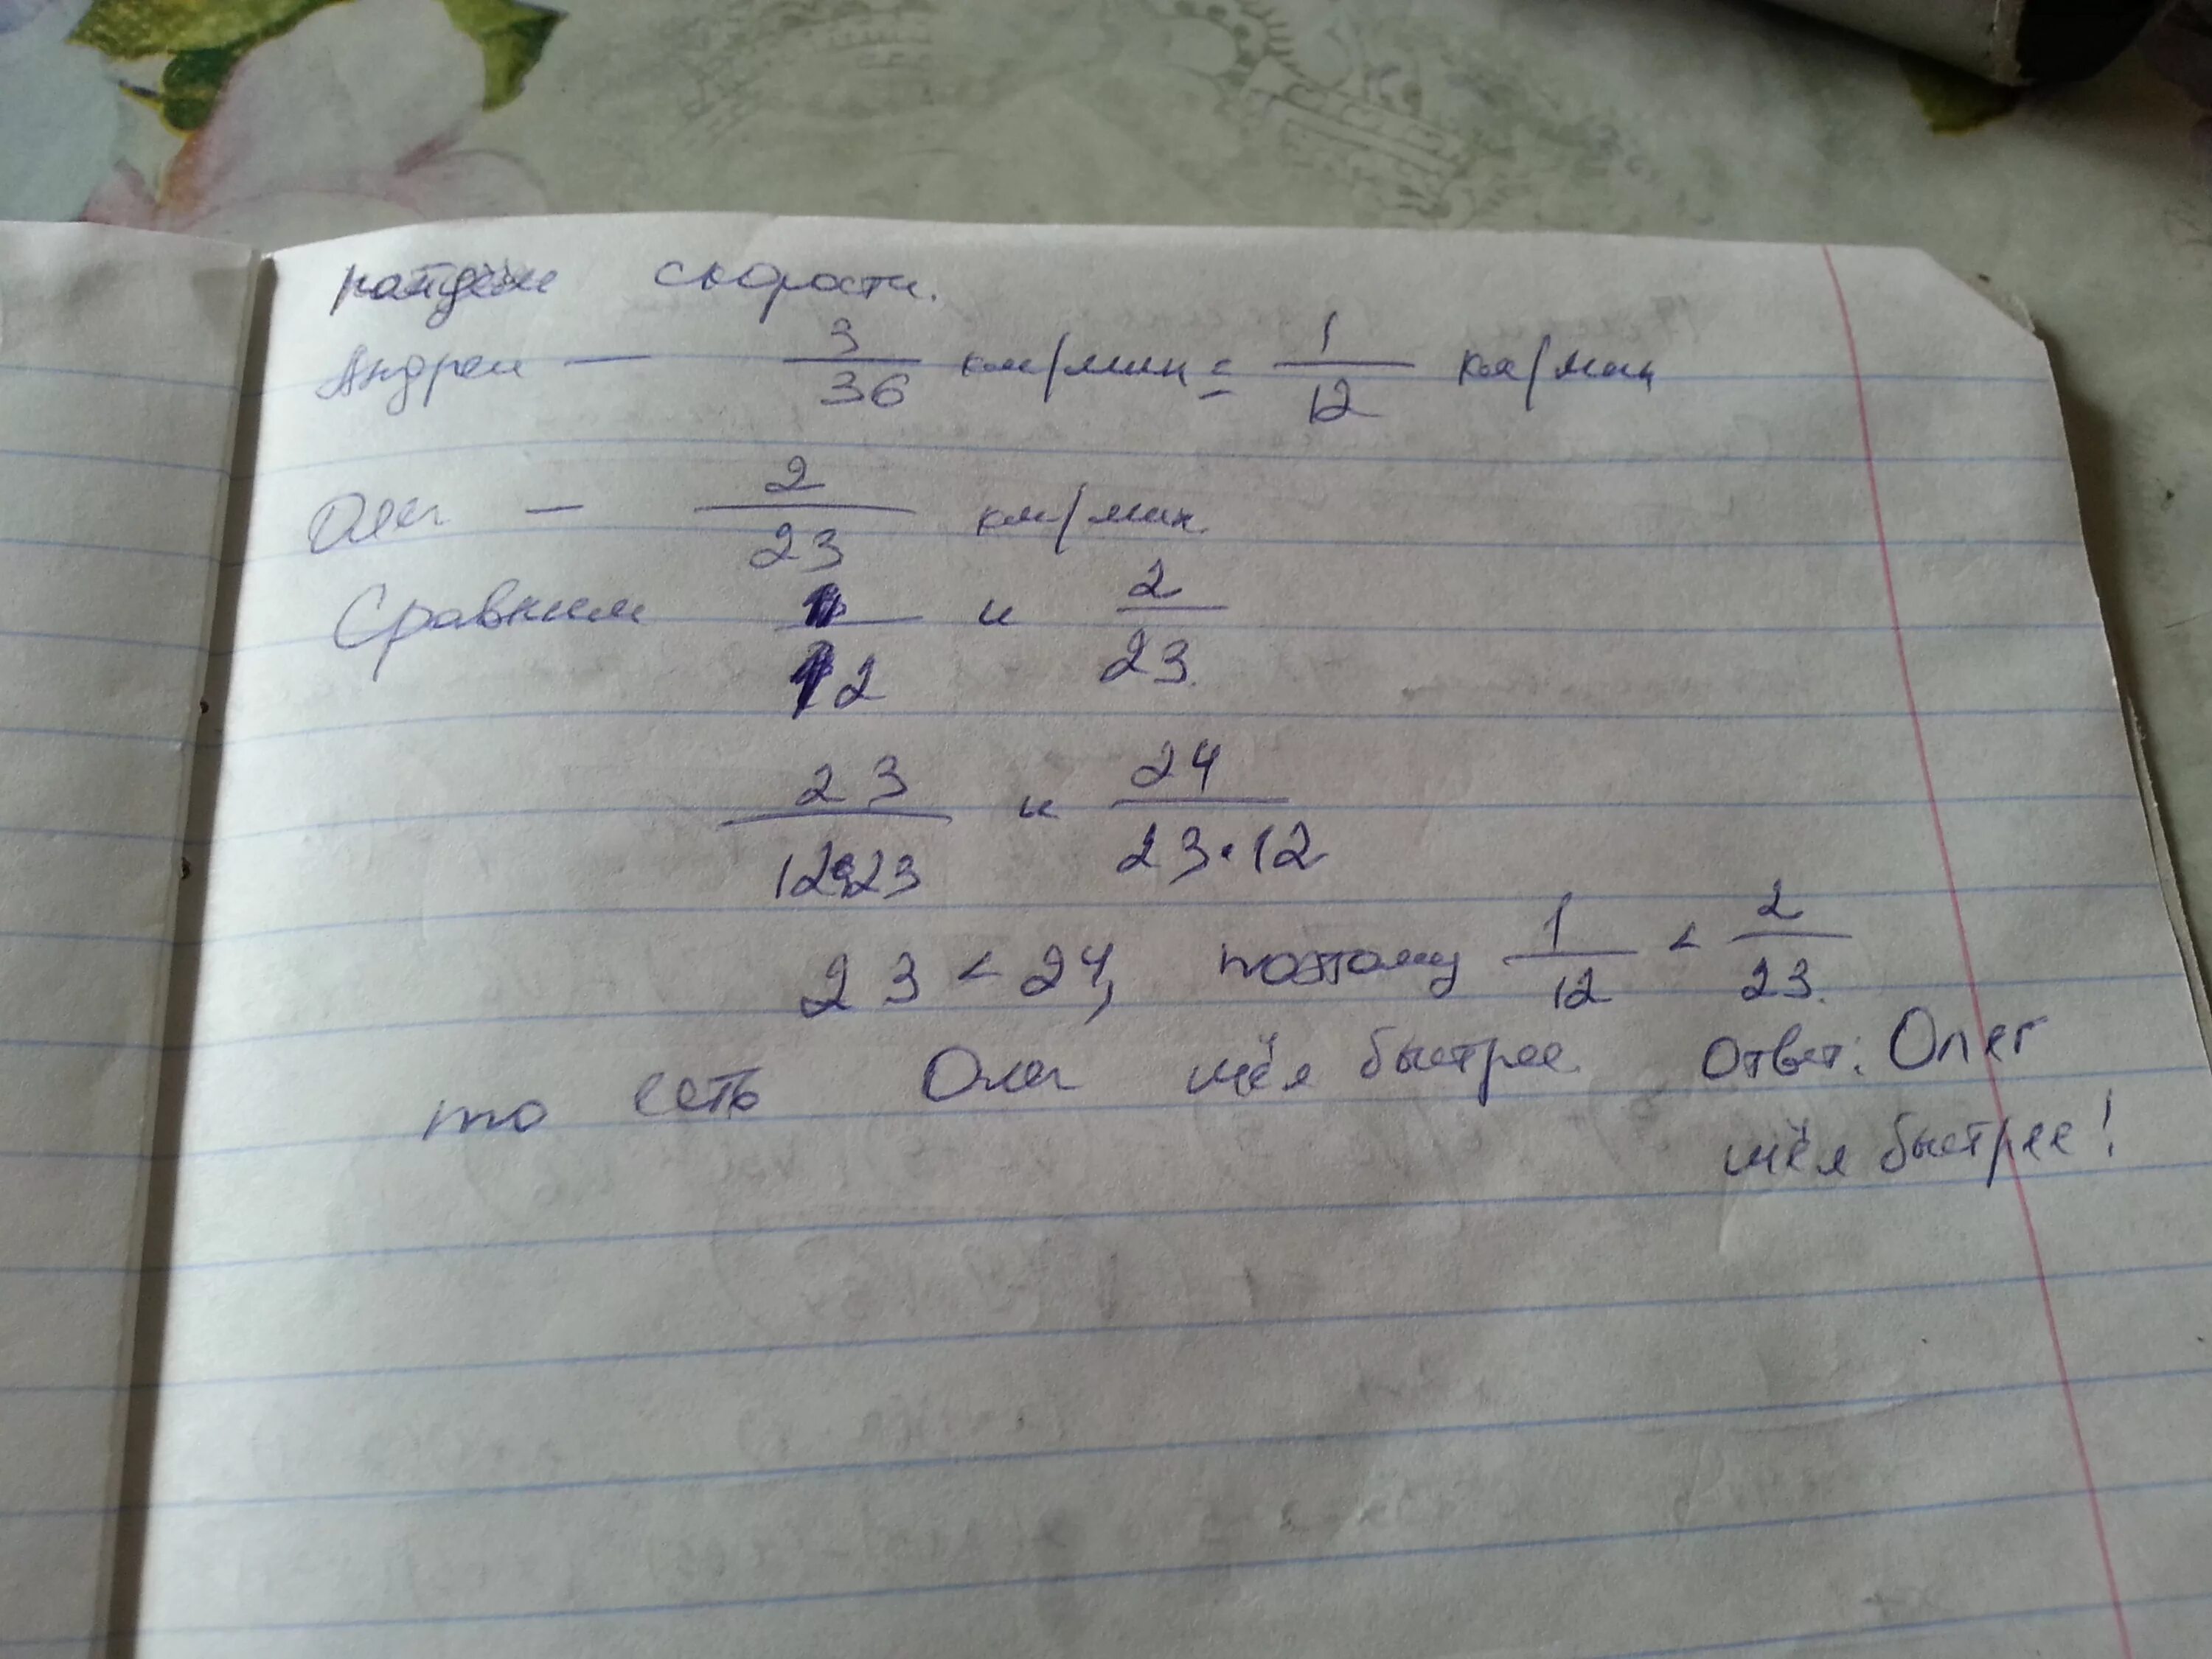 найдём скорости.
Андрей — 3/36 км/мин = 1/12 км/мин
Олег — 2/23 км/мин.
Сравним 1/12 и 2/23.
23/12·23 и 24/23·12
23 < 24, поэтому 1/12 < 2/23.
то есть Олег шёл быстрее. Ответ: Олег
шёл быстрее!